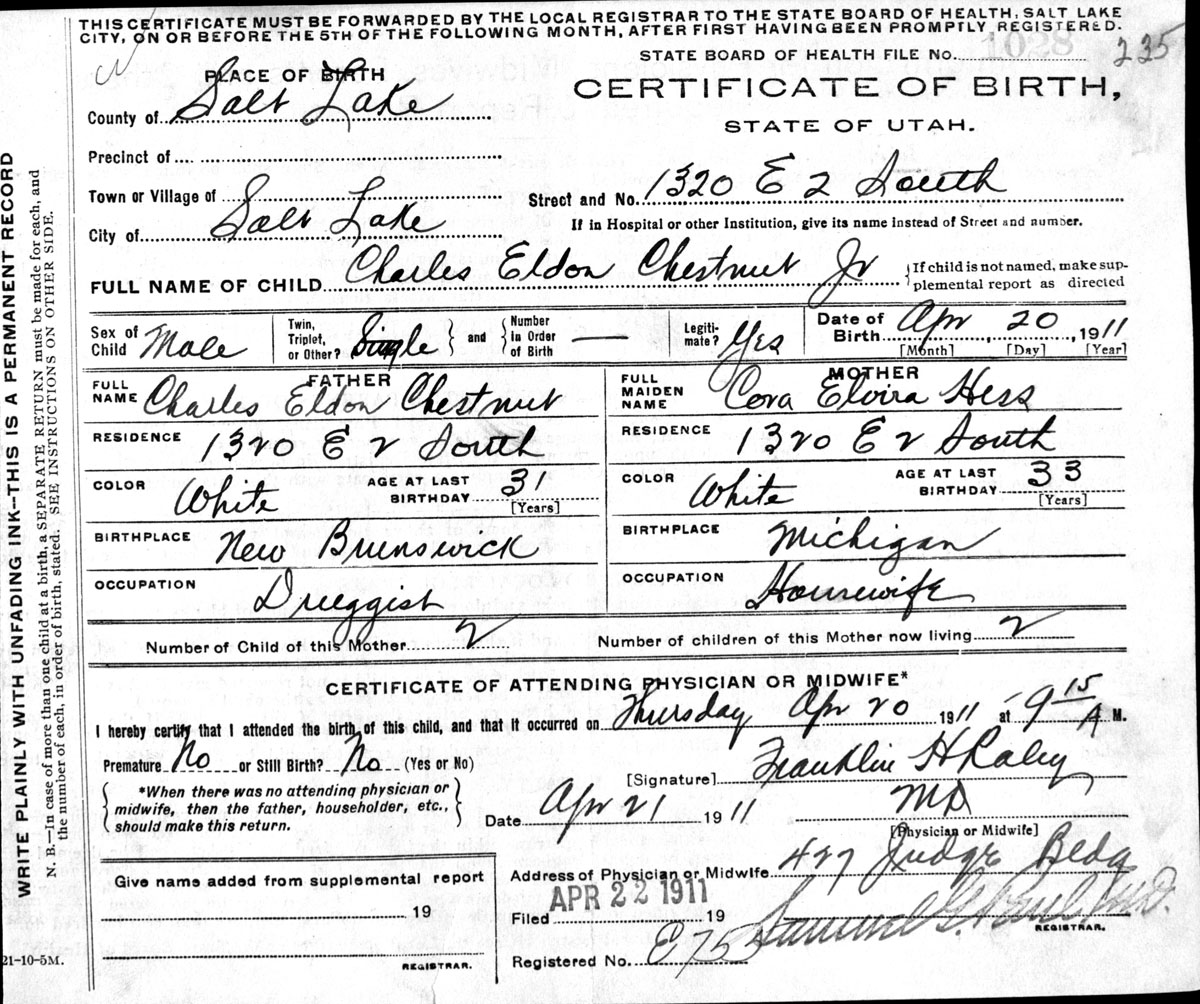 THIS CERTIFICATE MUST BE FORWARDED BY THE LOCAL REGISTRAR TO THE STATE BOARD OF HEALTH, SALT LAKE
CITY, ON OR BEFORE THE 5TH OF THE FOLLOWING MONTH, AFTER FIRST HAVING BEEN PROMPTLY REGISTERED.
STATE BOARD OF HEALTH FILE No. 1028 235
PLACE OF BIRTH
CERTIFICATE OF BIRTH,
STATE OF UTAH.
County of Salt Lake
Precinct of
Town or Village of
Street and No. 1320 E 2 South
City of Salt Lake
If in Hospital or other Institution, give its name instead of Street and number.
FULL NAME OF CHILD Charles Eldon Chestnut Jr
If child is not named, make sup-
plemental report as directed
Sex of Child Male
Twin, Triplet, or Other? Single
and
Number In Order of Birth —
Legiti-mate? Yes
Date of Birth Apr 20, 1911
[Month] [Day] [Year]
FATHER
FULL NAME Charles Eldon Chestnut
RESIDENCE 1320 E 2 South
COLOR White
AGE AT LAST BIRTHDAY 31
[Years]
BIRTHPLACE New Brunswick
OCCUPATION Druggist
MOTHER
FULL MAIDEN NAME Cora Elvira Hess
RESIDENCE 1320 E 2 South
COLOR White
AGE AT LAST BIRTHDAY 33
[Years]
BIRTHPLACE Michigan
OCCUPATION Housewife
Number of Child of this Mother 2
Number of children of this Mother now living 2
CERTIFICATE OF ATTENDING PHYSICIAN OR MIDWIFE*
I hereby certify that I attended the birth of this child, and that it occurred on Thursday, Apr 20 1911 at 9 15 A M.
Premature No or Still Birth? No (Yes or No)
[Signature] Franklin H Raley
*When there was no attending physician or
midwife, then the father, householder, etc.,
should make this return.
Date Apr 21 1911
MD
[Physician or Midwife]
Address of Physician or Midwife 427 Judge Bldg
Give name added from supplemental report
19
REGISTRAR.
Filed APR 22 1911 19
Samuel G. Paul M.D.
REGISTRAR.
Registered No. E 755
WRITE PLAINLY WITH UNFADING INK--THIS IS A PERMANENT RECORD
N. B.—In case of more than one child at a birth, a SEPARATE RETURN must be made for each, and
the number of each, in order of birth, stated. SEE INSTRUCTIONS ON OTHER SIDE.
21-10-5M.